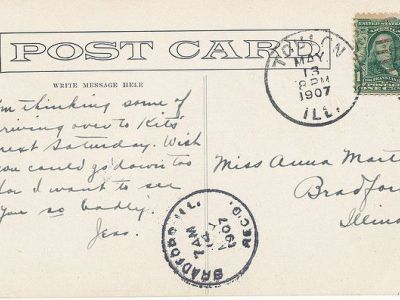 POST CARD
WRITE MESSAGE HERE
I'm thinking some of
driving over to Kits'
next Saturday. Wish
you could go down too
for I want to see
you so badly.
Jess.
TOULON
MAY
13
8 PM
1907
ILL.
Miss Anna Mart
Bradfor
Illino
BRADFORD, ILL.
MAY
14
7 AM
1907
REC'D.